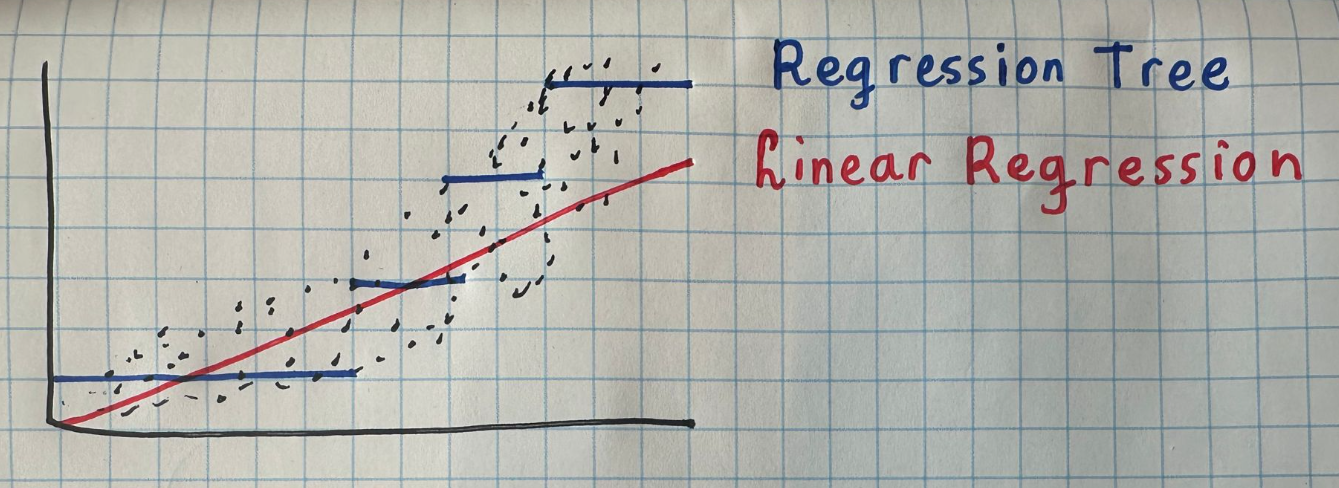 Regression Tree
Linear Regression